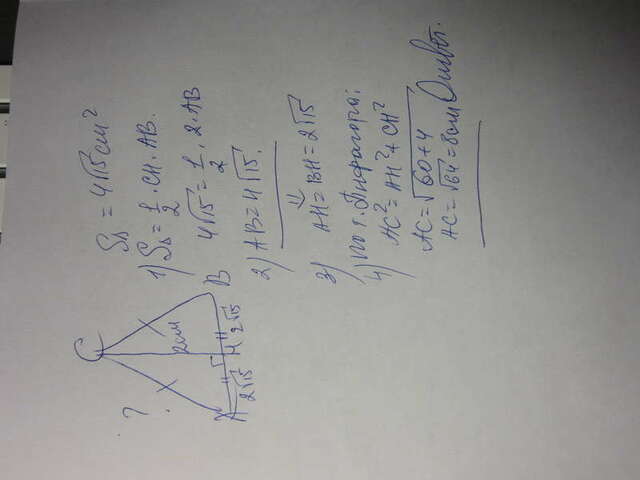 C
?
2см
A H B
2√15 2√15
S∆ = 4√15 см²
1) S∆ = 1/2 · CH · AB.
4√15 = 1/2 · 2 · AB
2) AB = 4√15.
3) AH = BH = 2√15
4) по т. Пифагора:
AC² = AH² + CH²
AC = √60+4
AC = √64 = 8см Ответ.